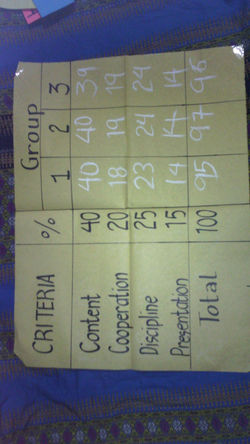 CRITERIA % Group
1 2 3
Content 40 40 40 39
Cooperation 20 18 19 19
Discipline 25 23 24 24
Presentation 15 14 14 14
Total 100 95 97 96